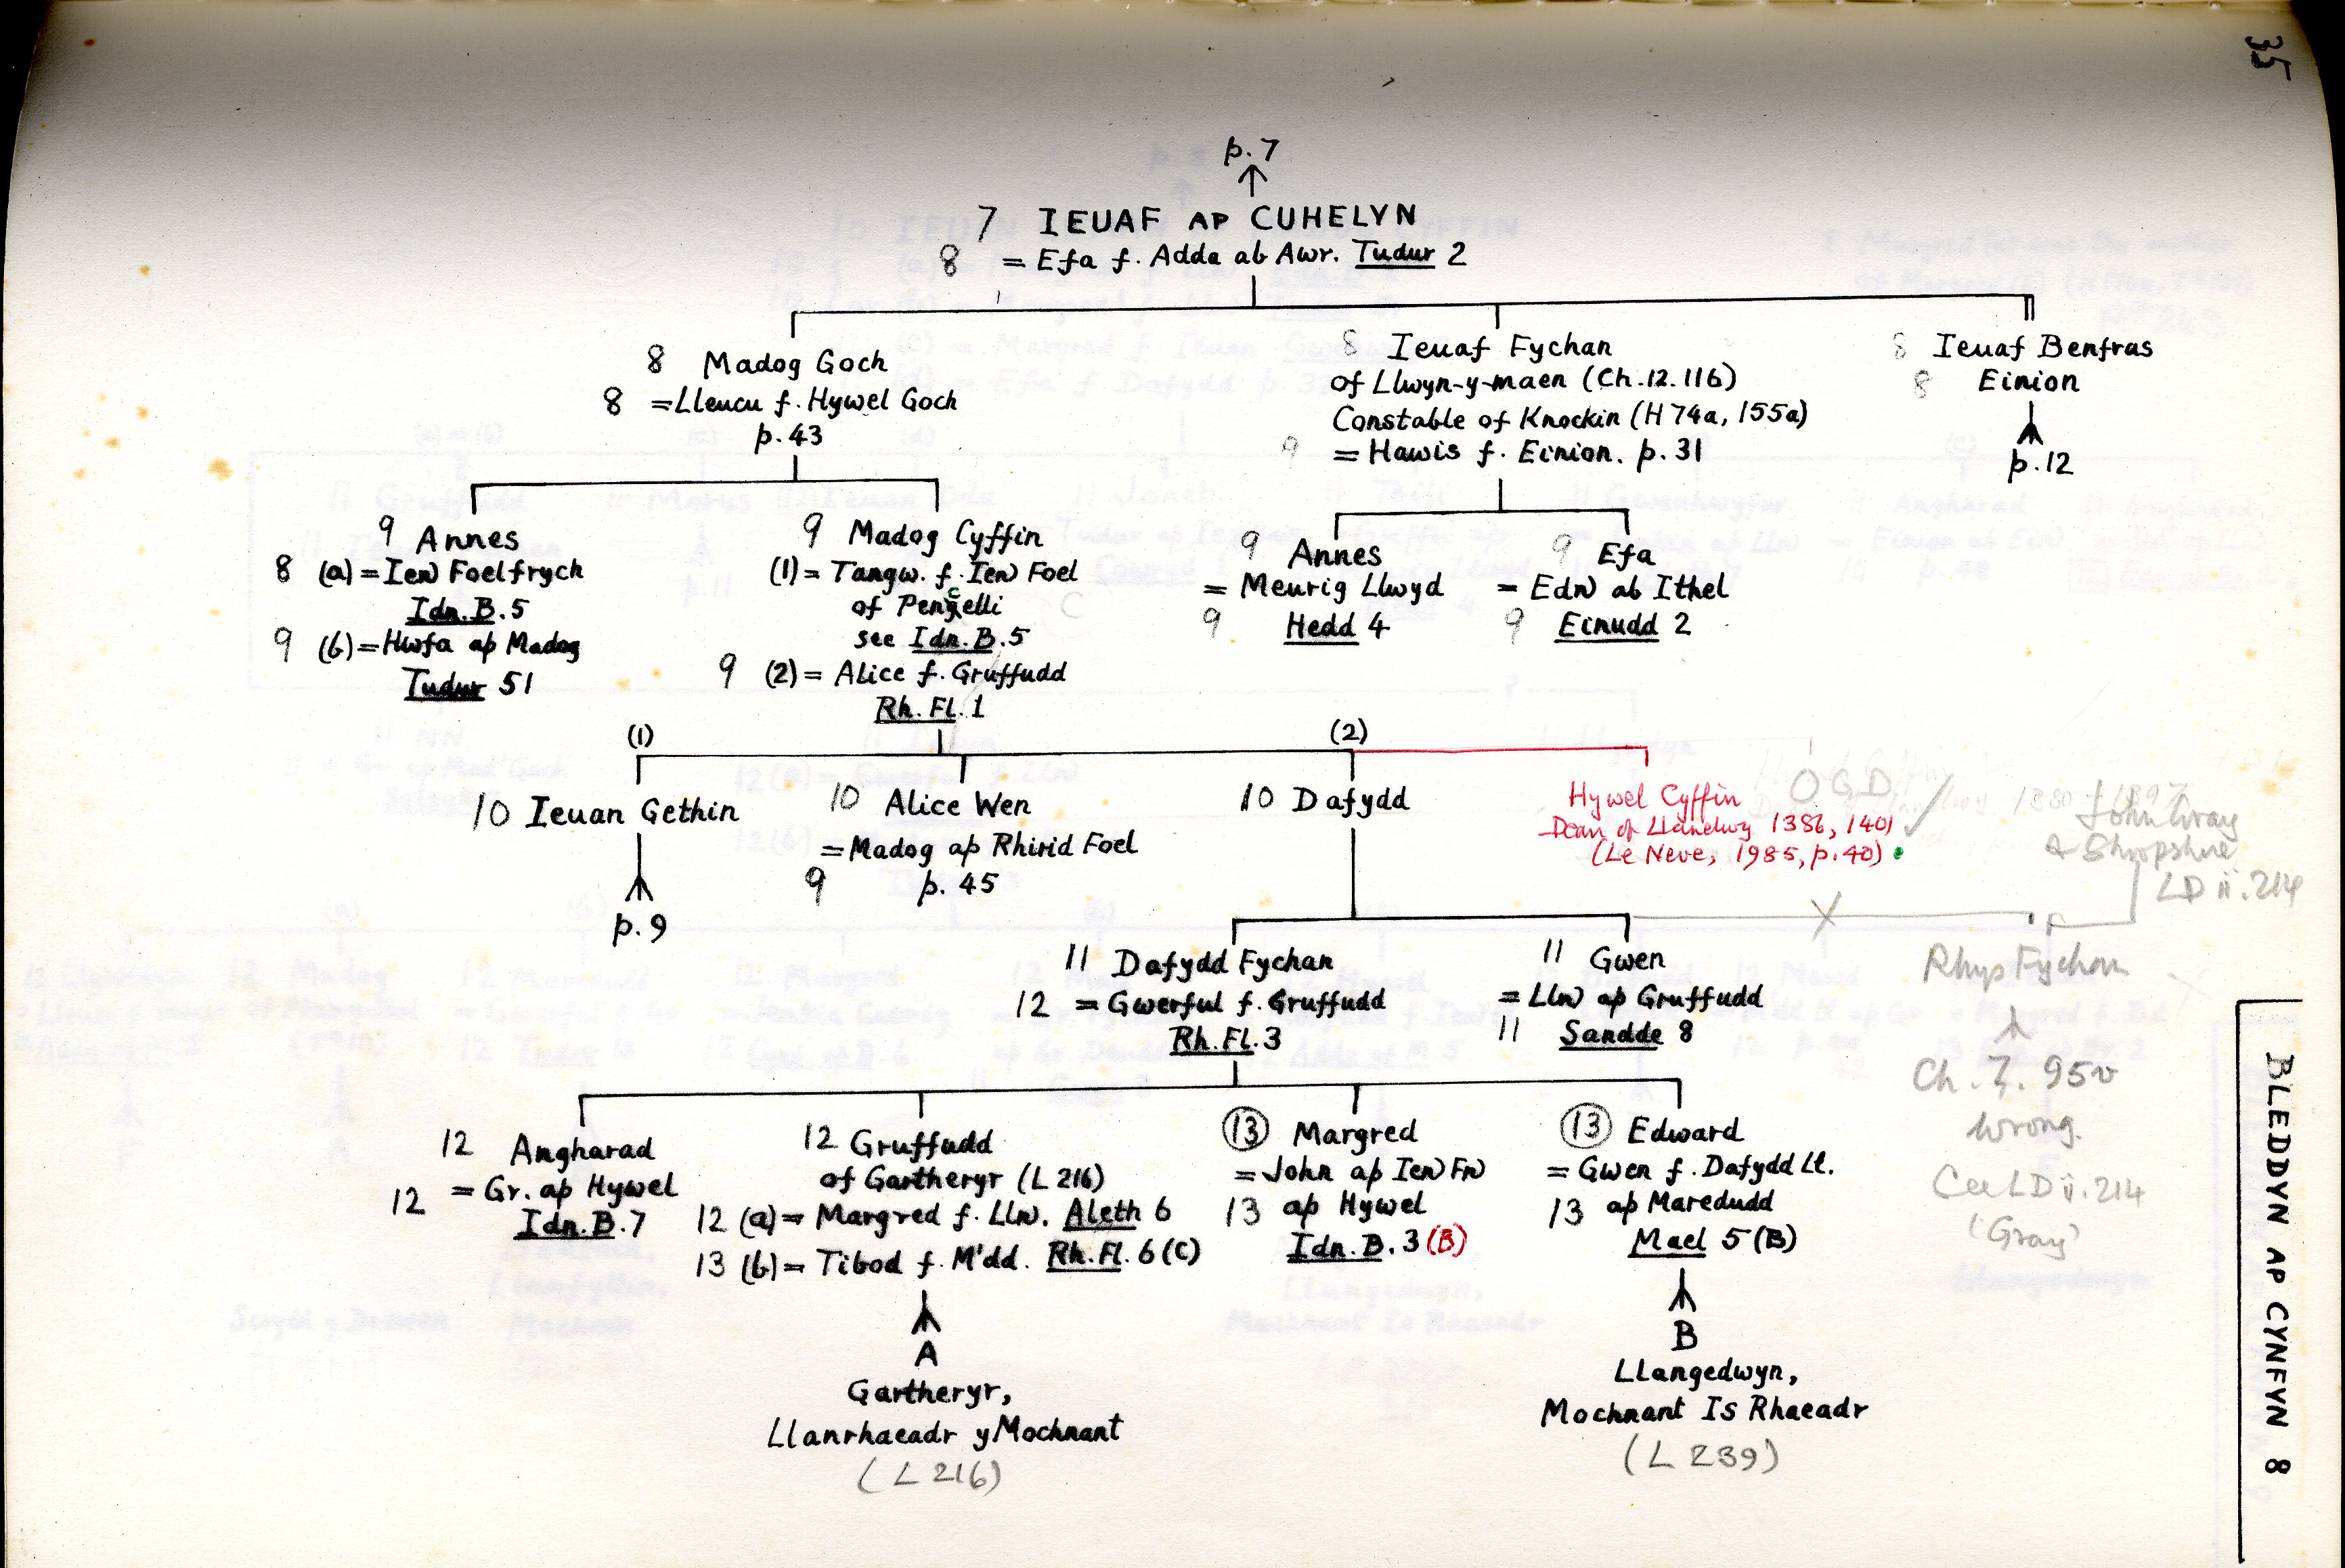 35
p. 7
7 IEUAF AP CUHELYN
8 = Efa f. Adda ab Awr. Tudur 2
8 Madog Goch
8 = Lleucu f. Hywel Goch
p. 43
8 Ieuaf Fychan
of Llwyn-y-maen (Ch. 12. 116)
Constable of Knockin (H 74a, 155a)
9 = Hawis f. Einion. p. 31
8 Ieuaf Benfras
8 Einion
p. 12
9 Annes
8 (a) = Ieu Foelfrych
Idn. B. 5
9 (b) = Hwfa ap Madog
Tudur 51
9 Madog Cyffin
(1) = Tangw. f. Ieu Foel
of Pencelli
see Idn. B. 5
9 (2) = Alice f. Gruffudd
Rh. Fl. 1
9 Annes
= Meurig Llwyd
9 Hedd 4
9 Efa
= Edn ab Ithel
9 Einudd 2
(1)
(2)
10 Ieuan Gethin
p. 9
10 Alice Wen
= Madog ap Rhirid Foel
9 p. 45
10 Dafydd
Hywel Cyffin
Dean of Llanelwy 1386, 1401
(Le Neve, 1985, p. 40)
OGD
1380 - 1397
John Gray
Shropshire
LD ii. 214
11 Dafydd Fychan
12 = Gwerful f. Gruffudd
Rh. Fl. 3
11 Gwen
= Lln ap Gruffudd
11 Sandde 8
X
Rhys Fychan
Ch. 7. 95v
wrong.
LD ii. 214
(Gray)
12 Angharad
12 = Gr. ap Hywel
Idn. B. 7
12 Gruffudd
of Gartheryr (L 216)
12 (a) = Margred f. Lln. Aleth 6
13 (b) = Tibod f. M'dd. Rh. Fl. 6 (C)
A
Gartheryr,
Llanrhaeadr y Mochnant
(L 216)
13 Margred
= John ap Ieu Fn
13 ap Hywel
Idn. B. 3 (B)
13 Edward
= Gwen f. Dafydd Ll.
13 ap Maredudd
Mael 5 (B)
B
Llangedwyn,
Mochnant Is Rhaeadr
(L 239)
BLEDDYN AP CYNFYN 8